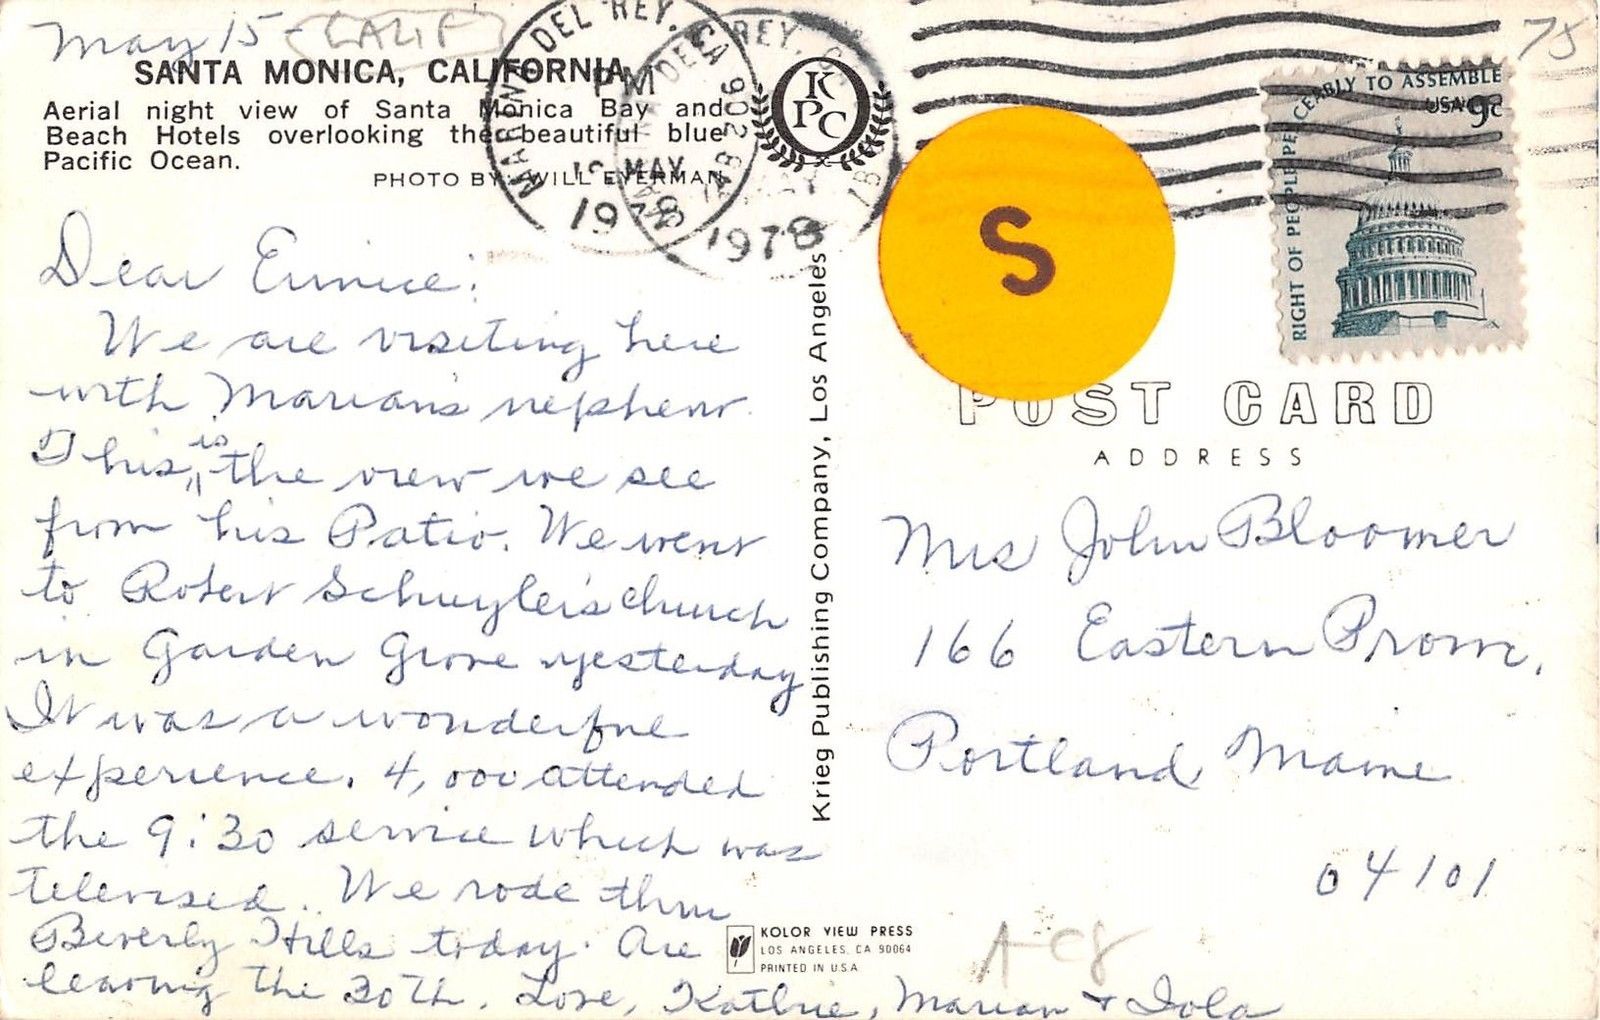 May 15 - CALIF
SANTA MONICA, CALIFORNIA
Aerial night view of Santa Monica Bay and
Beach Hotels overlooking the beautiful blue
Pacific Ocean.
PHOTO BY WILL EVERMAN
KPC
MARINA DEL REY, CA 902
PM
MAY
1978
1978
75
RIGHT OF PEOPLE PEACEABLY TO ASSEMBLE
USA 9c
S
Dear Eunice:
We are visiting here
with Marian's nephew.
This is the view we see
from his Patio. We went
to Robert Schuyler's church
in Garden Grove yesterday
It was a wonderful
experience. 4,000 attended
the 9:30 service which was
televised. We rode thru
Beverly Hills today. Are
leaving the 30th. Love, Kathrie, Marian & Iola
Krieg Publishing Company, Los Angeles
POST CARD
ADDRESS
Mrs John Bloomer
166 Eastern Prom.
Portland Maine
04101
KOLOR VIEW PRESS
LOS ANGELES, CA 90064
PRINTED IN U.S.A
A-C8